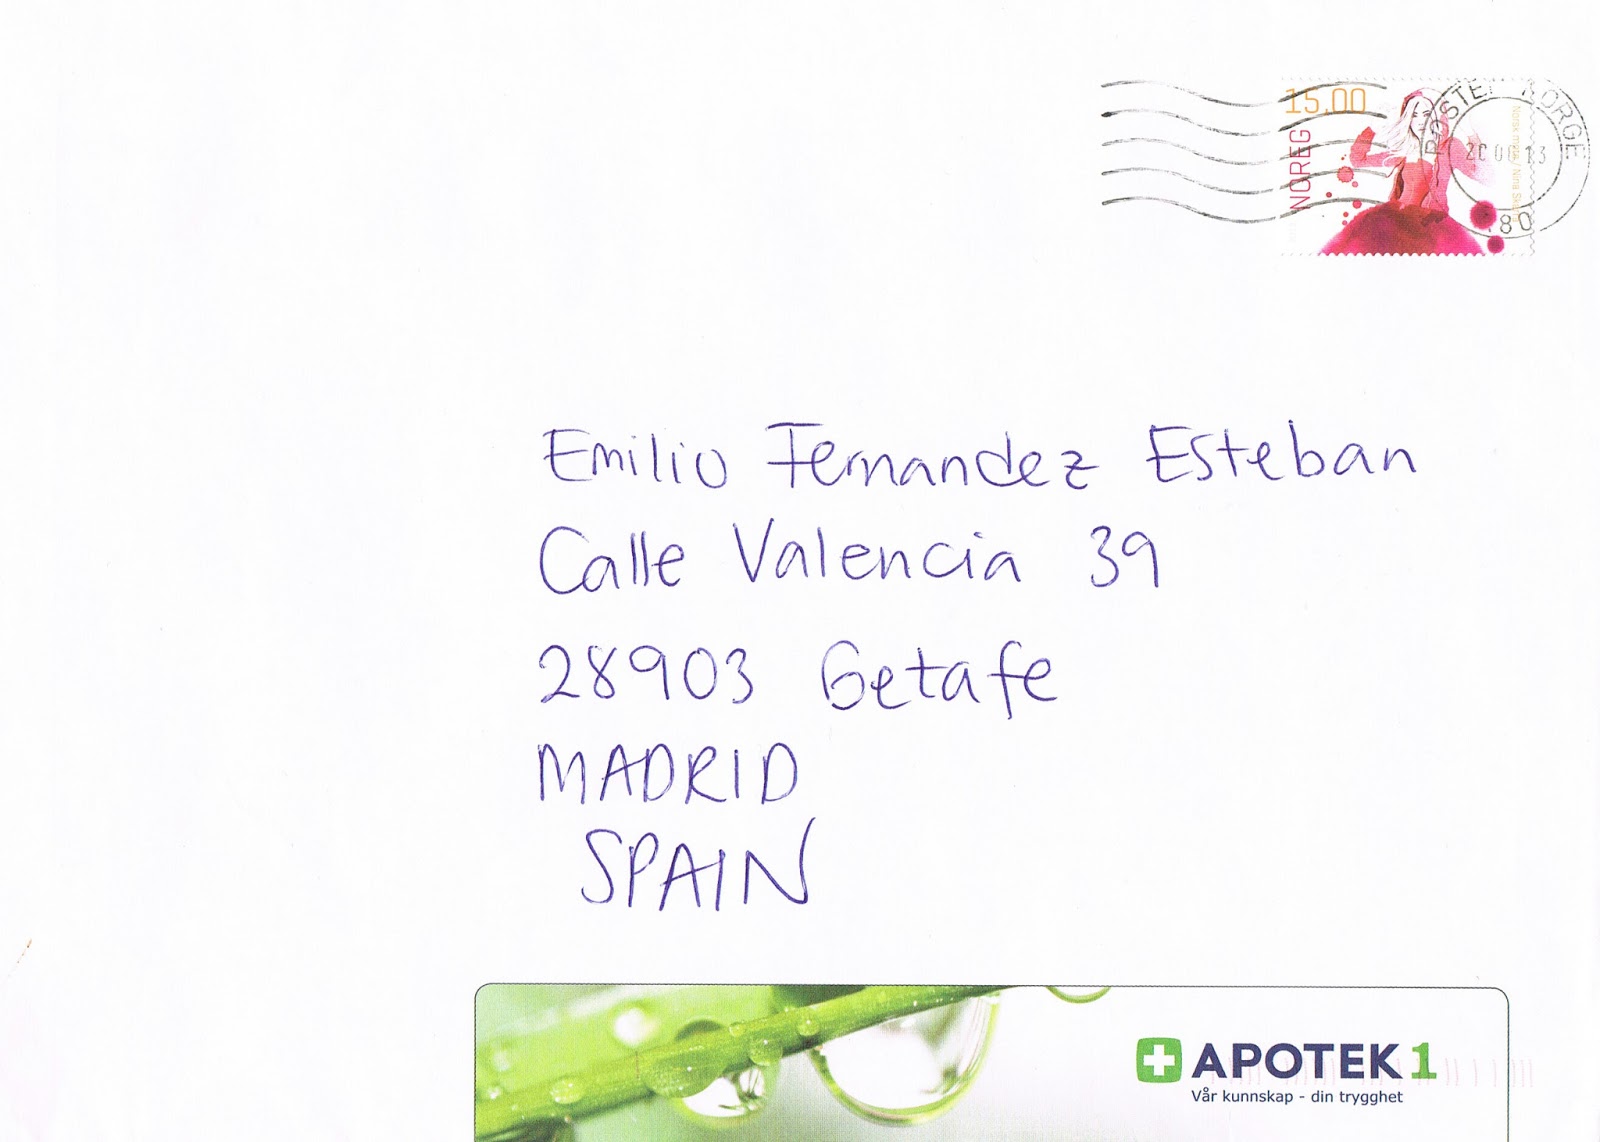 15.00
NOREG
POSTEN NORGE
80
Emilio Fernandez Esteban
Calle Valencia 39
28903 Getafe
MADRID
SPAIN
APOTEK 1
Vår kunnskap - din trygghet